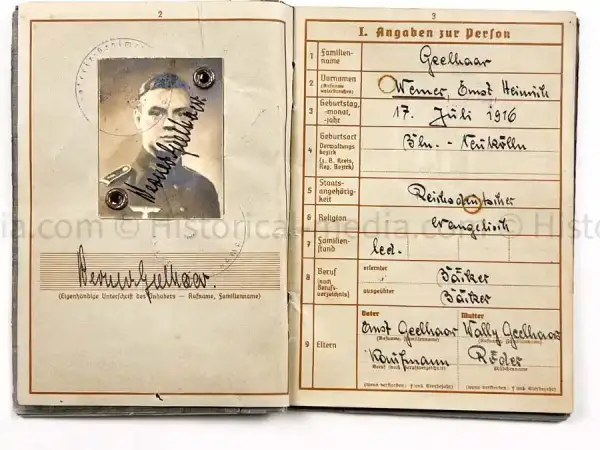 2
Werner Geelhaar
Werner Geelhaar.
(Eigenhändige Unterschrift des Inhabers — Rufname, Familienname)
3
I. Angaben zur Person
1 Familien-name Geelhaar
2 Vornamen (Rufname unterstreichen) Werner, Ernst Heinrich
3 Geburtstag, -monat, -jahr 17. Juli 1916
4 Geburtsort Verwaltungsbezirk (z. B. Kreis, Reg. Bezirk) Bln. - Neukölln
5 Staats-angehörig-keit Reichsdeutscher
6 Religion evangelisch
7 Familien-stand led.
8 Beruf (nach Berufs-verzeichnis) erlernter Bäcker
ausgeübter Bäcker
Vater Mutter
Ernst Geelhaar Wally Geelhaar
(Rufname, Familienname) (Rufname, Familienname)
9 Eltern Kaufmann Röder
Beruf (nach Berufsverzeichnis) Mädchenname
(wenn verstorben: † und Sterbejahr) (wenn verstorben: † und Sterbejahr)
© Historical-media.com © Historical-media.com © Histor